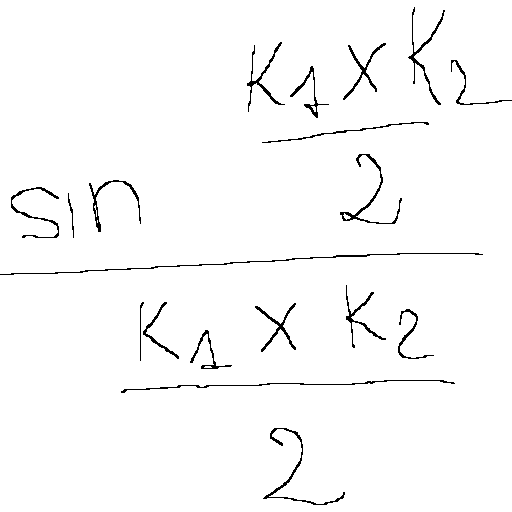 \frac{\sin \frac{K_1 \times K_2}{2}}{\frac{K_1 \times K_2}{2}}